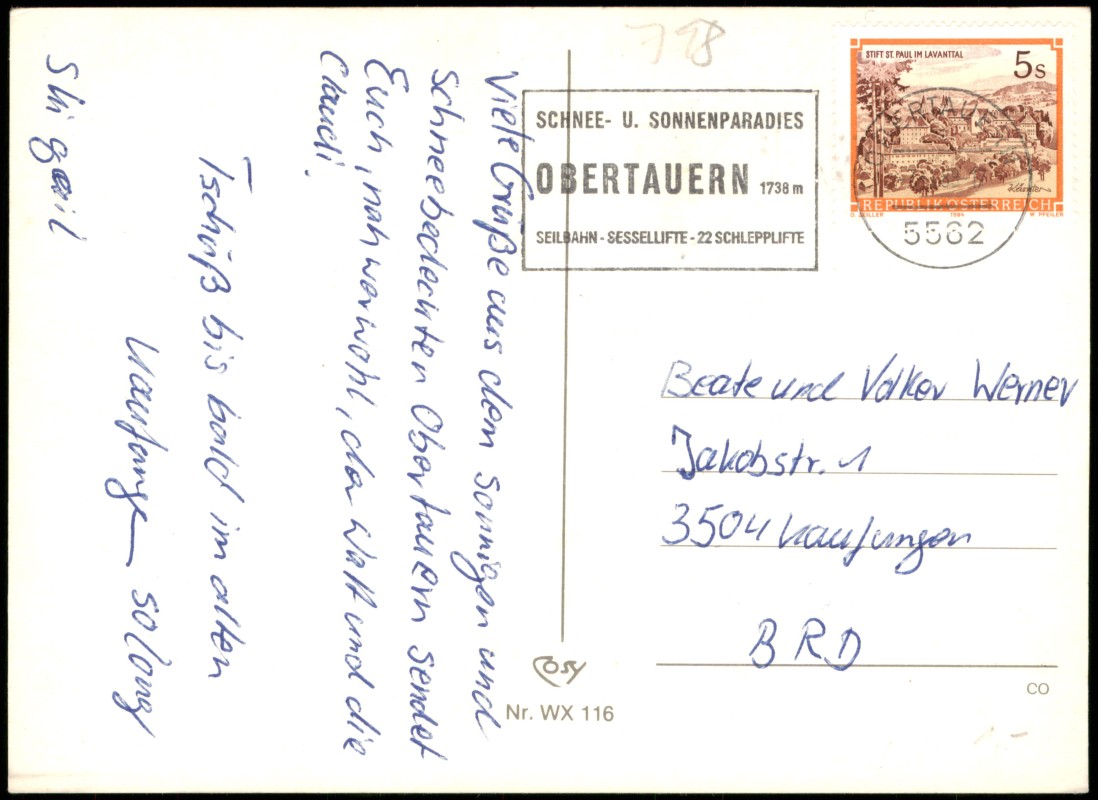 Viele Grüße aus dem sonnigen und
schneebedeckten Obertauern sendet
Euch, nah warwohl, der Watt und die
Claudi.
Tschüß bis bald im alten
Kaufungen so long
Ski geil
SCHNEE- U. SONNENPARADIES
OBERTAUERN 1738 m
SEILBAHN - SESSELLIFTE - 22 SCHLEPPLIFTE
STIFT ST. PAUL IM LAVANTTAL
5 S
REPUBLIK ÖSTERREICH
1984 W. PFEILER
OBERTAUERN
5562
Beate und Volker Werner
Jakobstr. 1
3504 Kaufungen
BRD
COSY
Nr. WX 116
CO